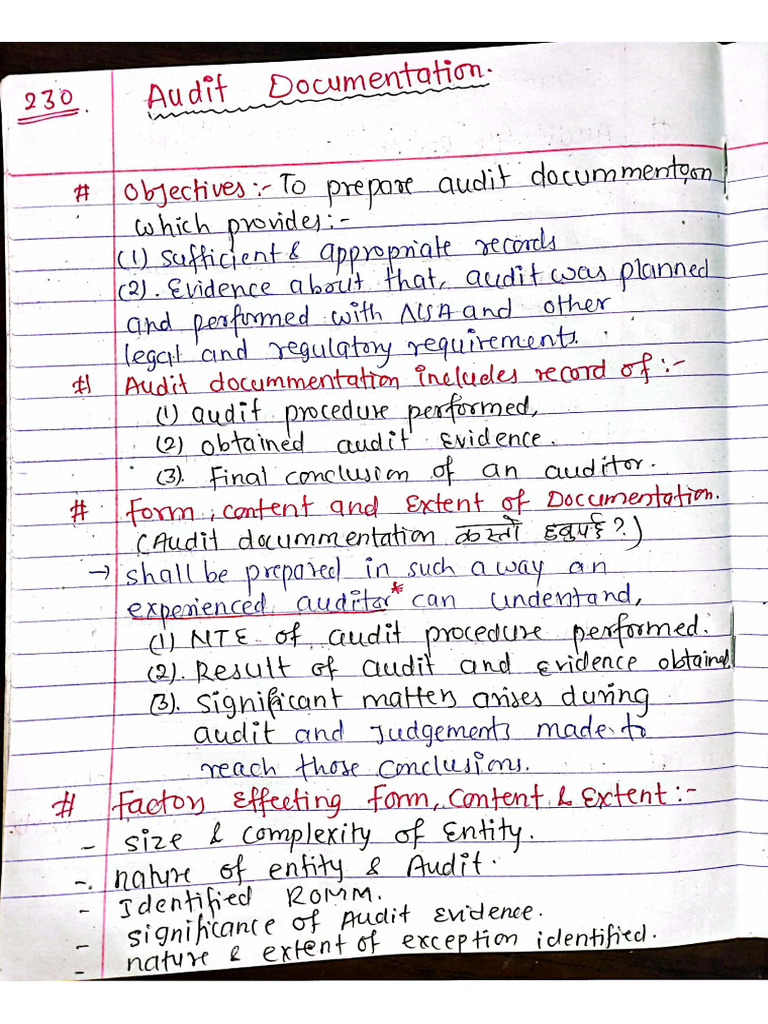 230. Audit Documentation.
# Objectives:- To prepare audit docummentation
which provides:-
(1) sufficient & appropriate records
(2). Evidence about that, audit was planned
and performed with NSA and other
legal and regulatory requirements.
# Audit docummentation includes record of:-
(1) audit procedure performed,
(2) obtained audit evidence.
(3). Final conclusion of an auditor.
# Form, content and Extent of Documentation.
(Audit docummentation कस्तो हुनुपर्छ?)
→ shall be prepared in such a way an
experienced auditor* can undentand,
(1) NTE of audit procedure performed.
(2). Result of audit and evidence obtained
(3). significant matters arises during
audit and Judgements made to
reach those conclusions.
# Factors Effecting form, content & Extent:-
- size & complexity of Entity.
- nature of entity & Audit.
- Identified ROMM.
- significance of Audit evidence.
- nature & extent of exception identified.